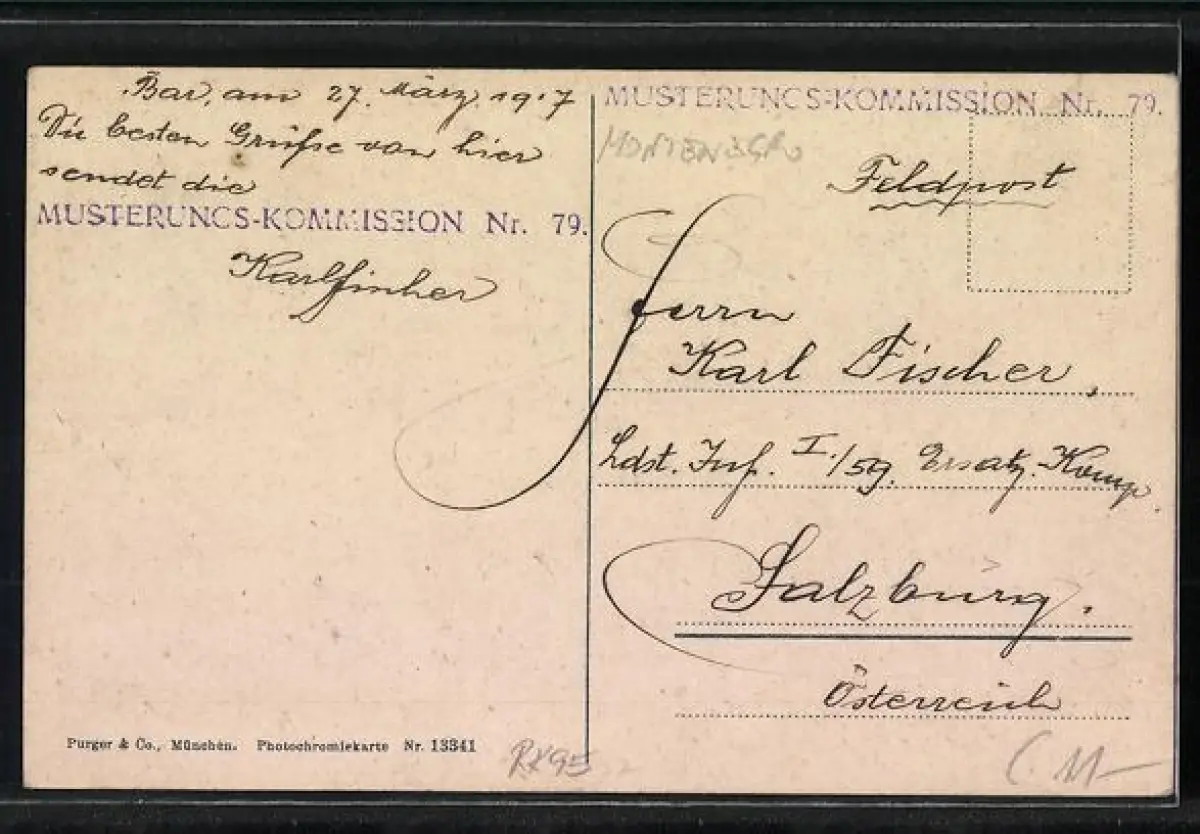 Bar, am 27. März 1917
Die besten Grüße von hier
sendet die
MUSTERUNGS-KOMMISSION Nr. 79.
MUSTERUNGS-KOMMISSION Nr. 79.
MONTENEGRO
Feldpost
Herrn
Karl Fischer,
Ldst. Inf. I./59. Ersatz-Komp.
Salzburg.
Österreich
Purger & Co., München. Photochromiekarte Nr. 13341